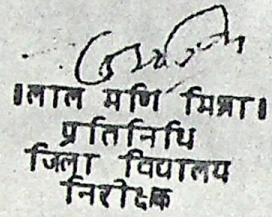 ।लाल मणि मिश्रा।
प्रतिनिधि
जिला विद्यालय
निरीक्षक